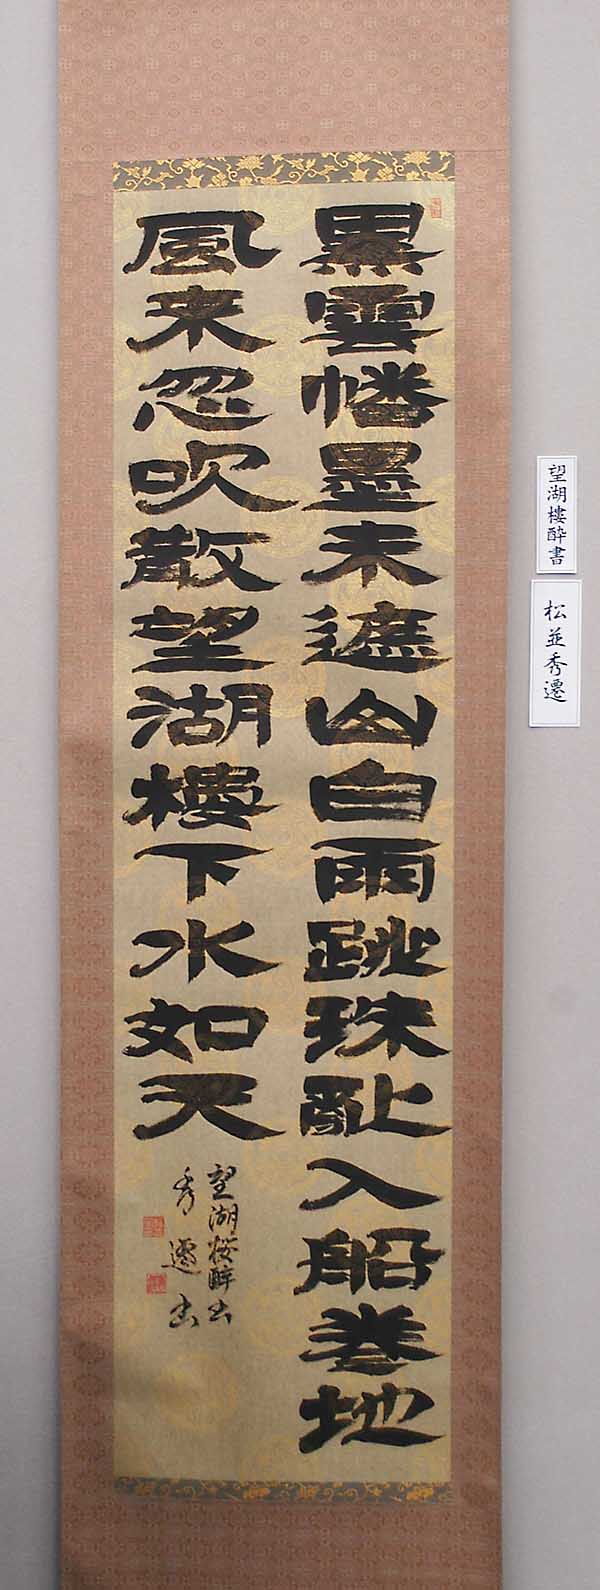 黒雲幡墨未遮山白雨跳珠乱入船巻地
風来忽吹散望湖樓下水如天
望湖樓酔書
秀遷書
望湖樓酔書
松並秀遷